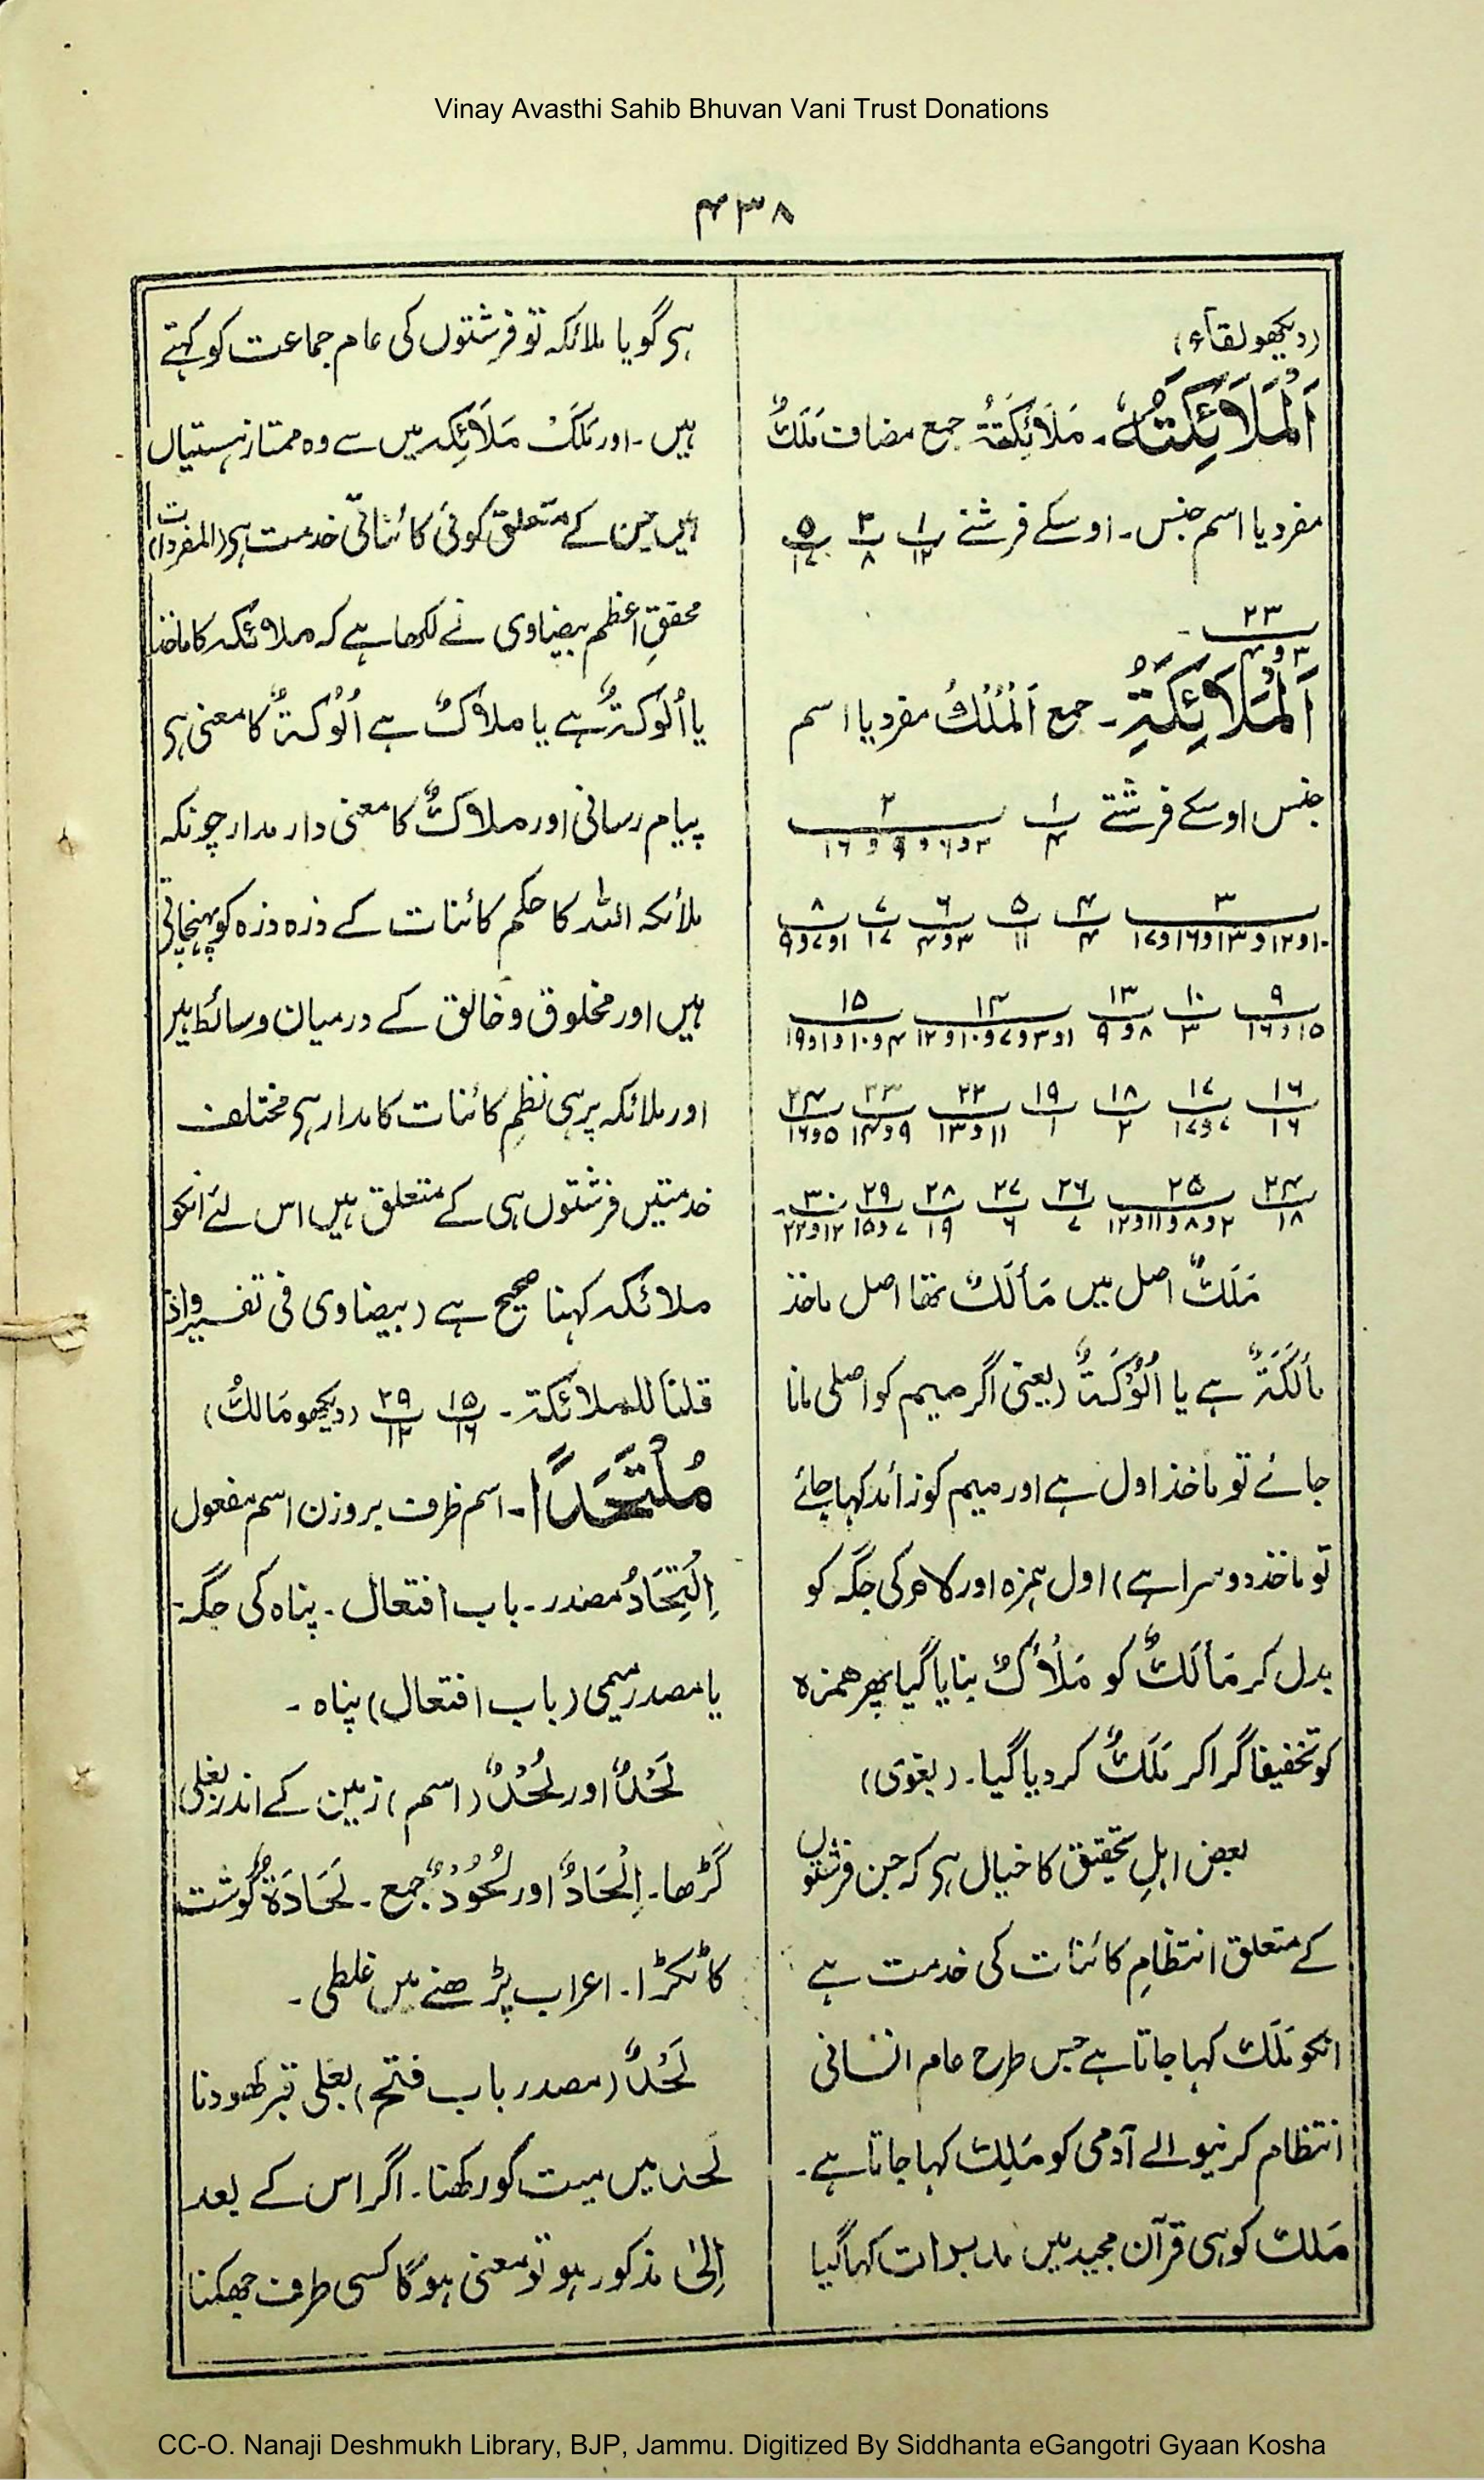 Vinay Avasthi Sahib Bhuvan Vani Trust Donations
۴۳۸
(دیکھو لقآء)
اَلْمَلَائِكَتُهٗ۔ مَلَائِكَةٌ جمع مضاف مَلَكٌ
مفرد یا اسم جنس۔ اوسکے فرشتے ۱/۱۲ ۳/۸ ۵/۱۷
۲۳/۳و۴۔
اَلْمَلَائِكَةِ۔ جمع اَلْمَلَكُ مفرد یا اسم
جنس اوسکے فرشتے ۱/۴ ۲/۳و۶و۹و۱۶
۳/۱۰و۱۲و۱۳و۱۶و۱۷ ۴/۴ ۵/۱۱ ۶/۳و۴ ۷/۱۷ ۸/۱و۷و۹
۹/۱۵و۱۶ ۱۰/۳ ۱۳/۸و۹ ۱۴/۱و۳و۷و۱۰و۱۲ ۱۵/۴و۱۰و۱و۱۹
۱۶/۱۶ ۱۷/۷و۱۷ ۱۸/۲ ۱۹/۱ ۲۲/۱۱و۱۳ ۲۳/۹و۱۴ ۲۴/۵و۱۶
۲۴/۱۸ ۲۵/۲و۸و۱۱و۱۲ ۲۶/۷ ۲۷/۶ ۲۸/۱۹ ۲۹/۷و۱۵ ۳۰/۱۲و۲۲۔
مَلَكٌ اصل میں مَأْلَكٌ تھا اصل ماخذ
مأْلَكَةٌ ہے یا اُلُوْكَةٌ (یعنی اگر میم کو اصلی مانا
جائے تو ماخذ اول ہے اور میم کو زائد کہا جائے
تو ماخذ دوسرا ہے) اول ہمزہ اور لام کی جگہ کو
بدل کر مَأْلَكٌ کو مَلْأَكٌ بنایا گیا پھر ہمزہ
کو تخفیفا گرا کر مَلَكٌ کر دیا گیا۔ (بغوی)
بعض اہلِ تحقیق کا خیال ہی کہ جن فرشتوں
کے متعلق انتظامِ کائنات کی خدمت ہے
انکو مَلَك کہا جاتا ہے جس طرح عام انسانی
انتظام کرنیوالے آدمی کو مَلِك کہا جاتا ہے۔
مَلَك کو ہی قرآن مجید میں مدبرات کہا گیا
ہی گویا ملائکہ تو فرشتوں کی عام جماعت کو کہتے
ہیں۔ اور مَلَكْ مَلَائِكہ میں سے وہ ممتاز ہستیاں
ہیں جن کے متعلق کوئی کائناتی خدمت ہی (المفردات)
محققِ اعظم بیضاوی نے لکھا ہے کہ ملائكہ کا ماخذ
یا اُلُوْكَةٌ ہے یا ملاكٌ ہے اُلُوْكَةٌ کا معنی ہی
پیام رسانی اور ملاكٌ کا معنی دار مدار چونکہ
ملائکہ اللہ کا حکم کائنات کے ذرہ ذرہ کو پہنچاتی
ہیں اور مخلوق و خالق کے درمیان وسائط ہیں
اور ملائکہ پر ہی نظمِ کائنات کا مدار ہی مختلف
خدمتیں فرشتوں ہی کے متعلق ہیں اس لئے انکو
ملائكہ کہنا صحیح ہے (بیضاوی فی تفسیر واذ
قلنا للملائكة۔ ۱۵/۱۶ ۲۹/۱۲ (دیکھو مَالكٌ)
مُلْتَحَدًا۔ اسم ظرف بروزن اسم مفعول
اِلْتِحَادٌ مصدر۔ باب افتعال۔ پناہ کی جگہ۔
یا مصدر میمی (باب افتعال) پناہ۔
لَحْدٌ اور لُحْدٌ (اسم) زمین کے اندر بغلی
گڑھا۔ اِلْحَادٌ اور لُحُوْدٌ جمع۔ لَحَادَةٌ گوشت
کا ٹکڑا۔ اعراب پڑھنے میں غلطی۔
لَحْدٌ (مصدر باب فتح) بغلی قبر کھودنا
لَحد میں میت کو رکھنا۔ اگر اس کے بعد
اِلیٰ مذکور ہو تو معنی ہوگا کسی طرف جھکنا
CC-O. Nanaji Deshmukh Library, BJP, Jammu. Digitized By Siddhanta eGangotri Gyaan Kosha